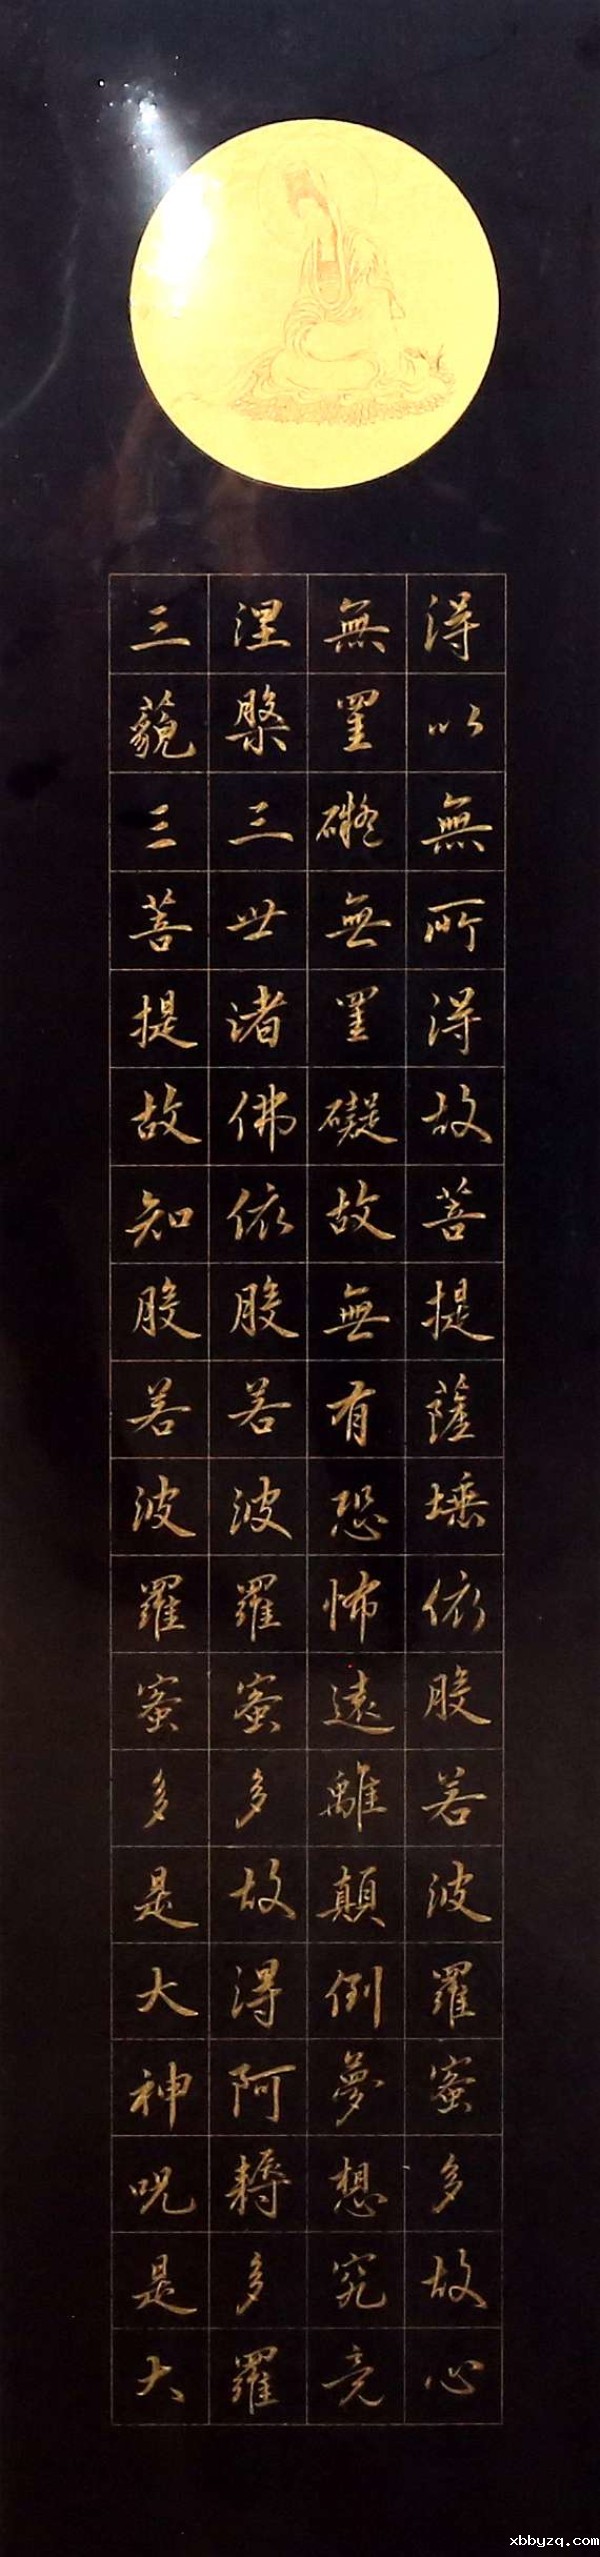 得以無所得故菩提薩埵依般若波羅蜜多故心
無罣礙無罣礙故無有恐怖遠離顛倒夢想究竟
涅槃三世諸佛依般若波羅蜜多故得阿耨多羅
三藐三菩提故知般若波羅蜜多是大神呪是大
xbbyzq.com